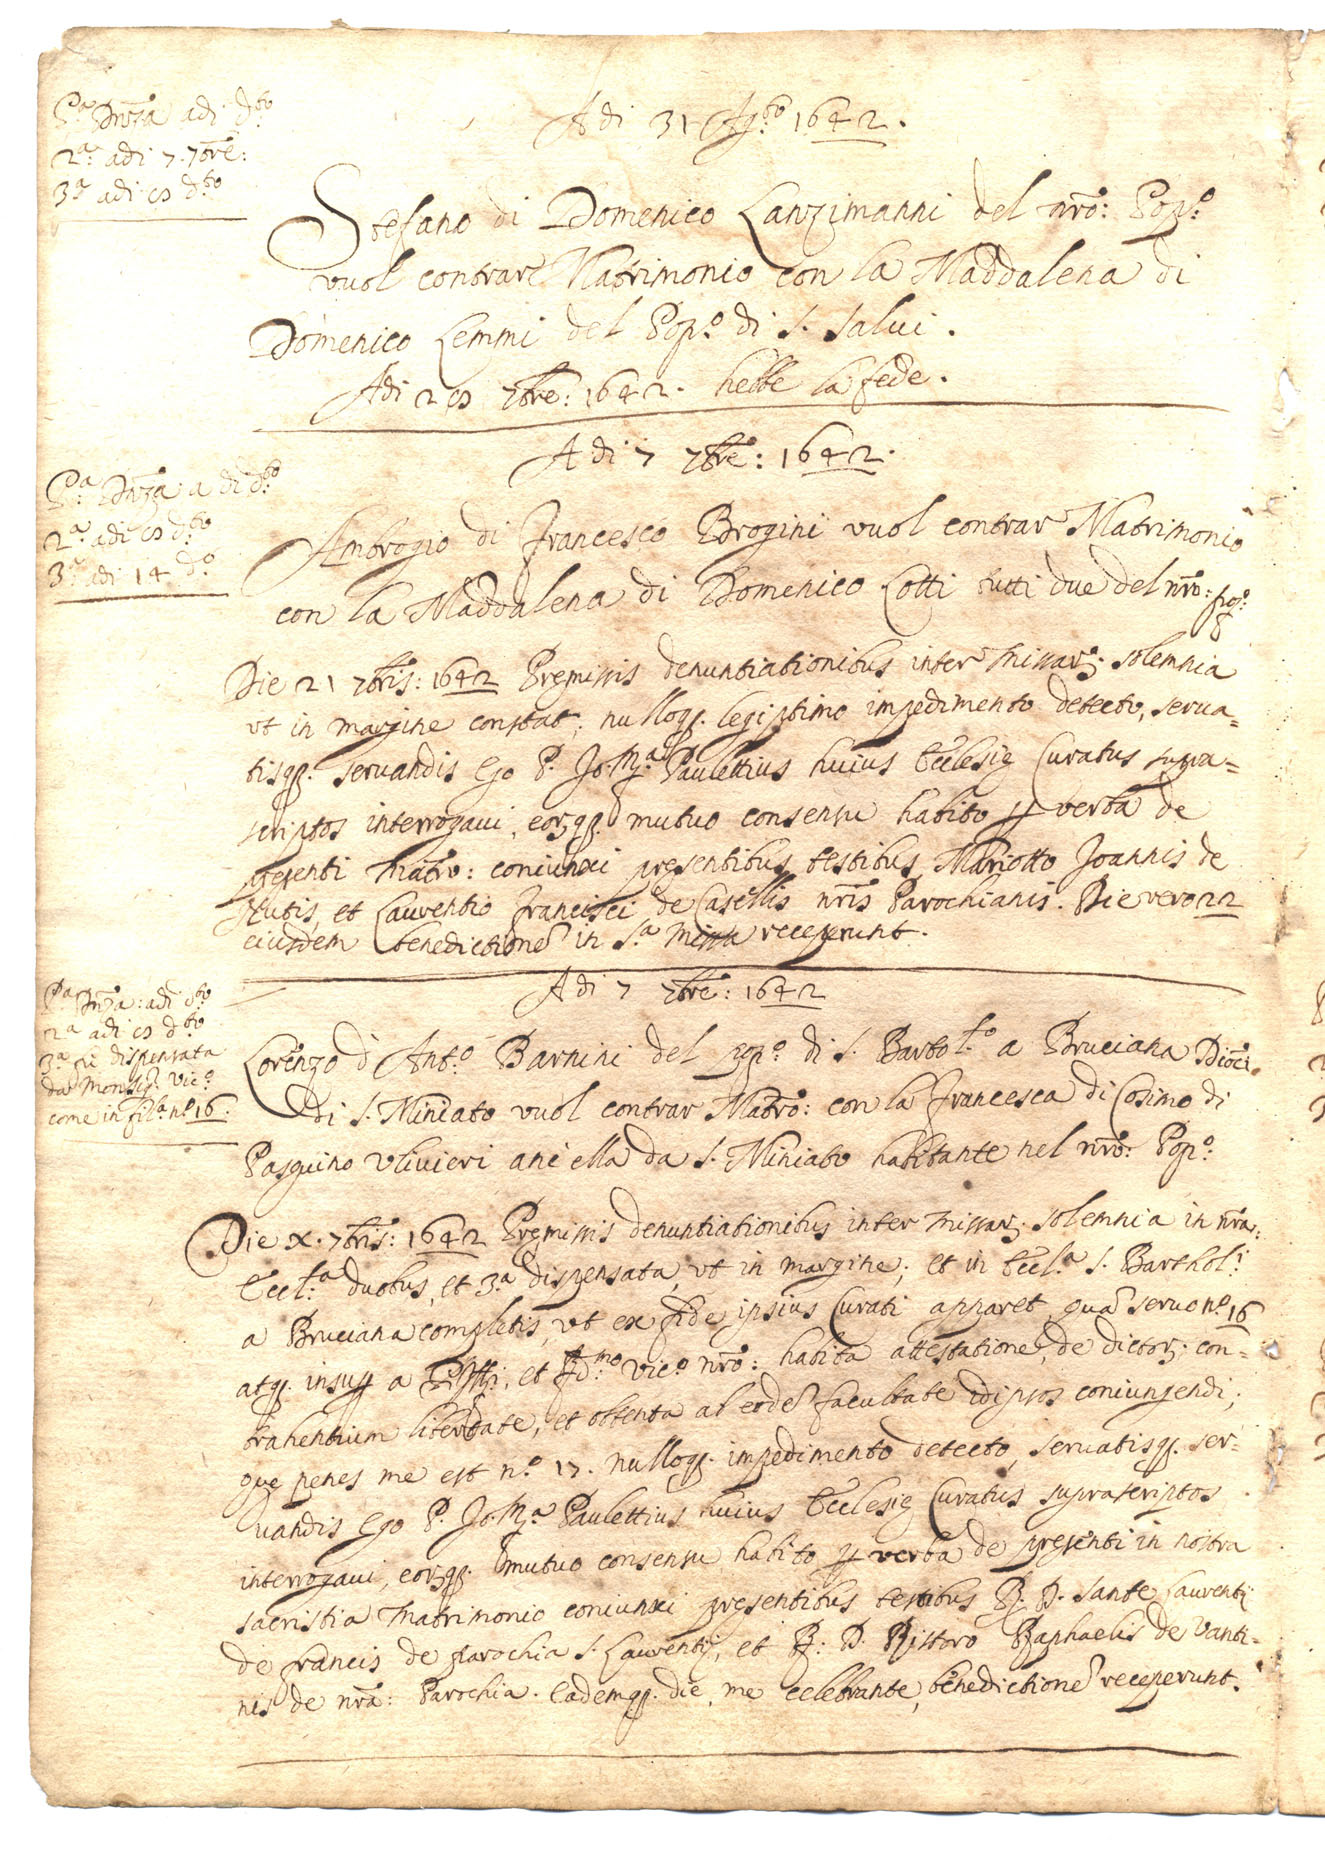 P.ª Dnza adi d.to
2.ª adi 7. 7bre:
3.ª adi 8 d.to
Adi 31 Ag.to 1642.
Stefano di Domenico Lanzimanni del nro: Pop.o
vuol contrare Matrimonio con la Maddalena di
Domenico Lemmi del Pop.o di S. Salui.
Adi 28 7bre: 1642. hebbe la fede.
P.ª Dnza a di d.to
2.ª adi 8 d.to
3.ª adi 14 d.o
A di 7 7bre: 1642.
Ambrogio di Francesco Brogini vuol contrar Matrimonio
con la Maddalena di Domenico Lotti tutti due del nro: pop.o
Die 21 7bris: 1642 Premissis denuntiationibus inter missar. solemnia
vt in margine constat, nulloq. legiptimo impedimento detecto, serua=
tisq. seruandis Ego P. Jo: M.ª Paulettius huius Ecclesię Curatus supra=
scriptos interrogaui, eorq. mutuo consensu habito p verba de
presenti matro: coniunxi presentibus testibus Mariotto Joannis de
et Laurentio Francisci de Casellis nris Parochianis. Die vero 22
eiusdem benedictione in S.ª missa receperunt.
P.ª Dnza: adi d.to
2.ª adi 8 d.to
3.ª fu dispensata
da Monsig.r Vic.o
come in fil.ª n.o 16.
Adi 7 7bre: 1642
Lorenzo d' Ant.o Barnini del pop.o di S. Bartol.o a Bruciana Dioci.
di S. Miniato vuol contrar Matro: con la Francesca di Cosimo di
Pasquino Vliuieri anc' ella da S. Miniato habitante nel nro: Pop.o
Die X. 7bris: 1642 Premissis denuntiationibus inter missar. solemnia in nra:
Eccl.ª duobus, et 3.ª dispensata, vt in margine; et in Eccl.ª S. Barthol.i
a Bruciana completis, vt ex fide ipsius Curati apparet, qua seruo n.o 16
atq. insup a et vic.o nro: habita attestatione, de dictor. con=
trahentium libertate, et obtenta ab eode facultate idipsos coniungendi,
que penes me est n.o 17. nulloq. impedimento detecto, seruatisq. ser=
uandis Ego P. Jo: M.ª Paulettius huius Ecclesię Curatus suprascriptos
interrogaui, eorq. mutuo consensu habito p verba de presenti in nostra
sacristia matrimonio coniunxi presentibus testibus R. D. Sante Laurentij
de Francis de Parochia S. Laurentij, et R. D. Ristoro Raphaelis de Vanti=
nis de nra: Parochia. Eademq. die, me celebrante, benedictione receperunt.